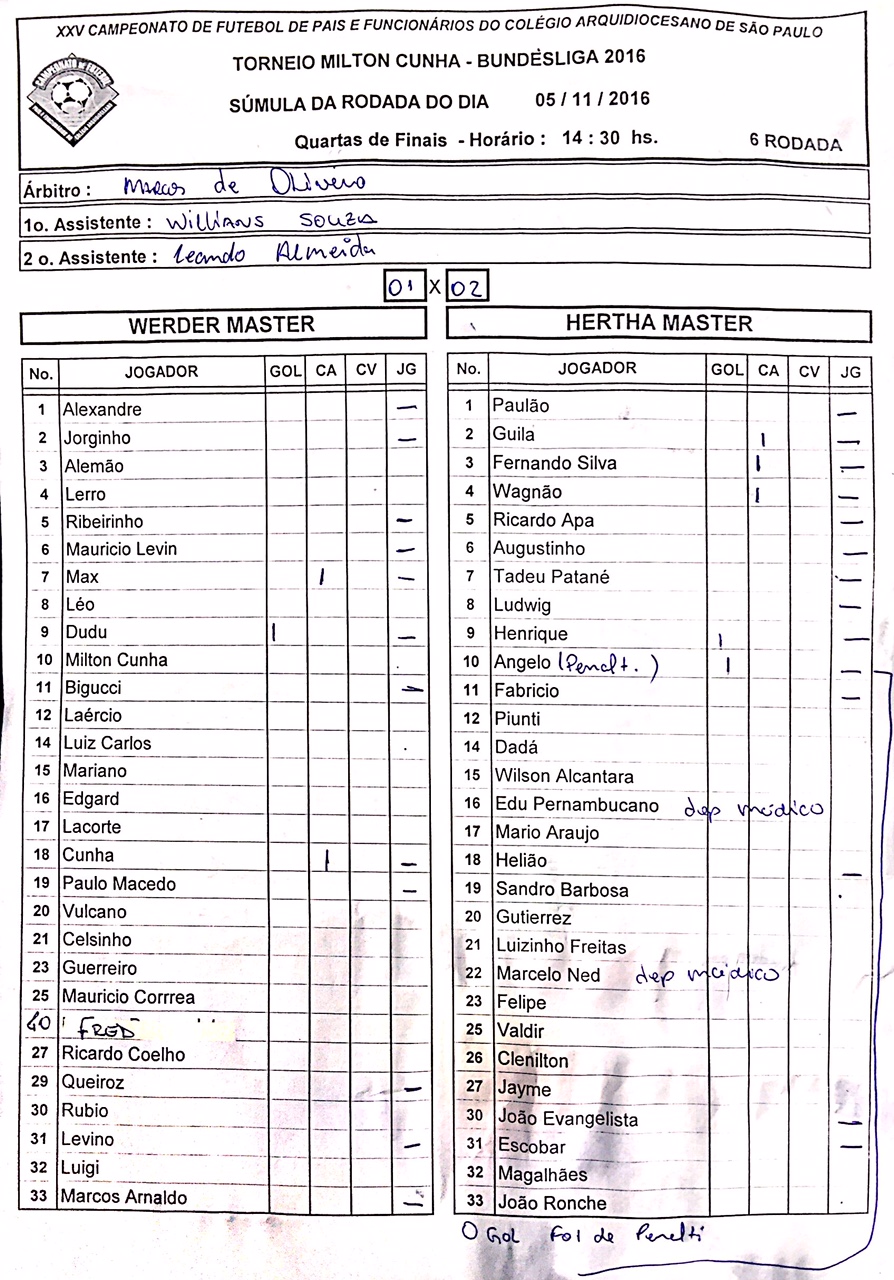 XXV CAMPEONATO DE FUTEBOL DE PAIS E FUNCIONÁRIOS DO COLÉGIO ARQUIDIOCESANO DE SÃO PAULO
TORNEIO MILTON CUNHA - BUNDESLIGA 2016
SÚMULA DA RODADA DO DIA 05 / 11 / 2016
Quartas de Finais - Horário : 14 : 30 hs. 6 RODADA
Árbitro : Marcos de Oliveira
1o. Assistente : Willians Souza
2 o. Assistente : Leandro Almeida
01 X 02
WERDER MASTER
No. JOGADOR GOL CA CV JG
1 Alexandre —
2 Jorginho —
3 Alemão
4 Lerro
5 Ribeirinho —
6 Mauricio Levin —
7 Max | —
8 Léo
9 Dudu | —
10 Milton Cunha
11 Bigucci —
12 Laércio
14 Luiz Carlos
15 Mariano
16 Edgard
17 Lacorte
18 Cunha | —
19 Paulo Macedo —
20 Vulcano
21 Celsinho
23 Guerreiro
25 Mauricio Corrrea
40 FRED
27 Ricardo Coelho
29 Queiroz —
30 Rubio
31 Levino —
32 Luigi
33 Marcos Arnaldo —
HERTHA MASTER
No. JOGADOR GOL CA CV JG
1 Paulão —
2 Guila | —
3 Fernando Silva | —
4 Wagnão | —
5 Ricardo Apa —
6 Augustinho —
7 Tadeu Patané —
8 Ludwig —
9 Henrique | —
10 Angelo (Penalt.) | —
11 Fabricio —
12 Piunti
14 Dadá
15 Wilson Alcantara
16 Edu Pernambucano dep médico
17 Mario Araujo
18 Helião —
19 Sandro Barbosa
20 Gutierrez
21 Luizinho Freitas
22 Marcelo Ned dep médico
23 Felipe
25 Valdir
26 Clenilton
27 Jayme
30 João Evangelista —
31 Escobar —
32 Magalhães
33 João Ronche
O Gol Foi de Penalti